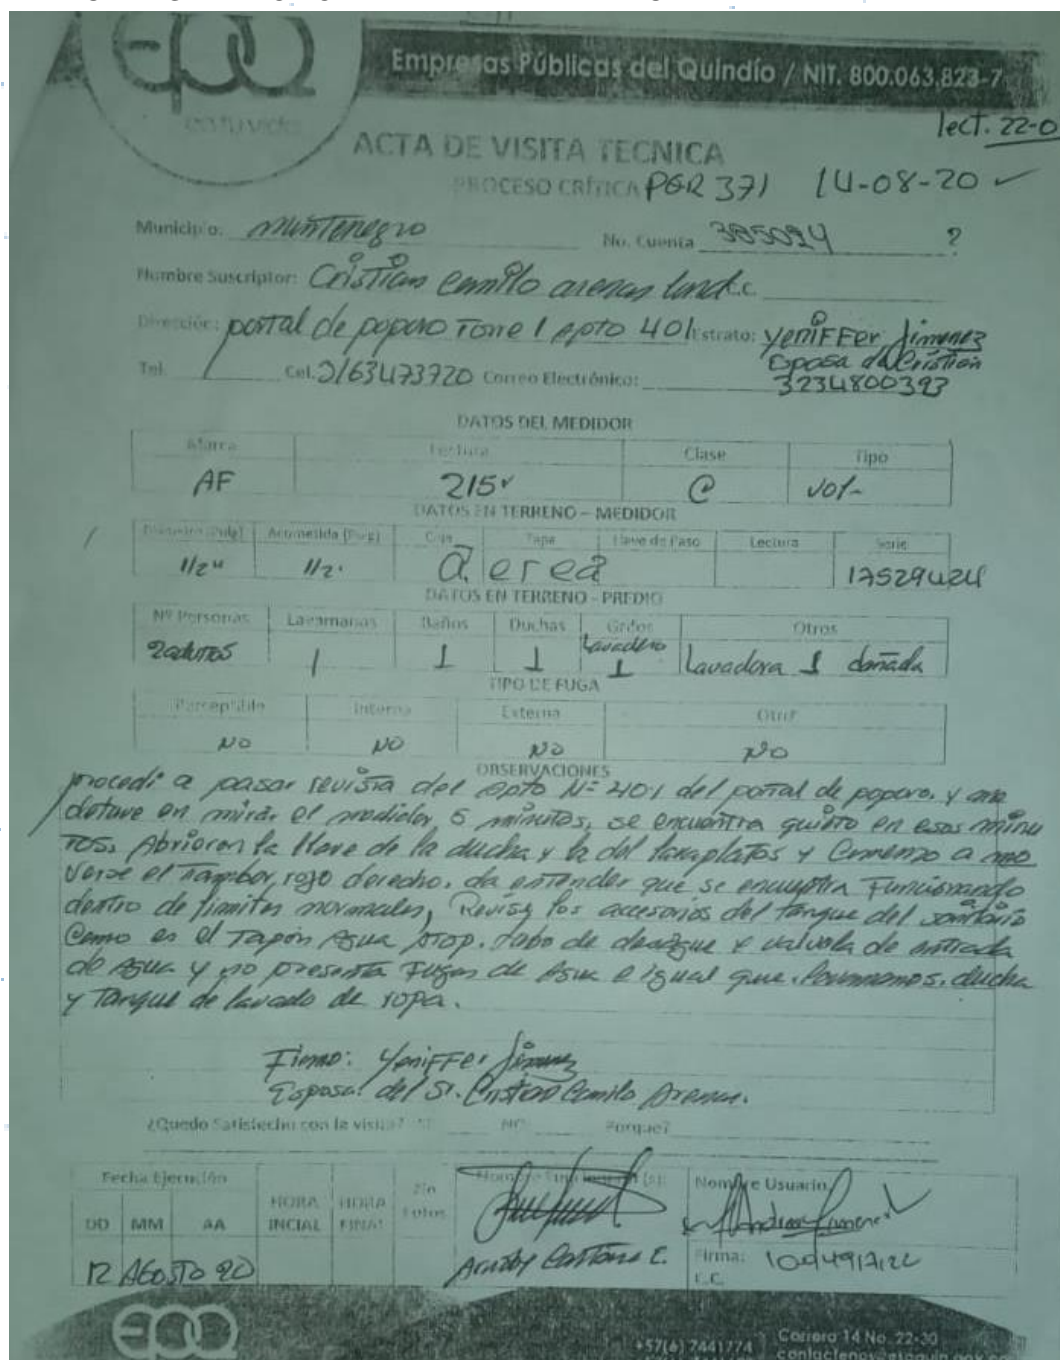 epq
en tu vida
Empresas Públicas del Quindío / NIT. 800.063.823-7
lect. 22-0
ACTA DE VISITA TECNICA
PROCESO CRÍTICA PQR 371 14-08-20
Municipio: Montenegro No. Cuenta 385024 ?
Nombre Suscriptor: Cristian Camilo arenas C.C.
Dirección: portal de poporo Torre 1 apto 401 Estrato: Yeniffer Jimenez
Esposa de Cristian
Tel. Cel. 3163473720 Correo Electrónico: 3234800393
DATOS DEL MEDIDOR
Marca Lectura Clase Tipo
AF 215 C vol-
DATOS EN TERRENO – MEDIDOR
Diametro (Pulg) Acometida (Pulg) Caja Tapa Llave de Paso Lectura Serie
1/2" 1/2" aerea 17529424
DATOS EN TERRENO - PREDIO
Nº Personas Lavamanos Baños Duchas Grifos Otros
2 adultos 1 1 1 Lavadero 1 Lavadora 1 dañada
TIPO DE FUGA
Perceptible Interna Externa Otros
NO NO NO NO
OBSERVACIONES
procedi a pasar revista del apto Nº 401 del portal de poporo. y me
detuve en mirar el medidor 5 minutos, se encuentra quieto en esos minu
tos. Abrieron la llave de la ducha y la del lavaplatos y Comenzo a mo
verse el Tambor rojo derecho. da entender que se encuentra Funcionando
dentro de limites normales, Revisé los accesorios del tanque del sanitario
Como es el Tapón Agua stop. tubo de desagüe y valvula de entrada
de Agua y no presenta Fugas de Agua e igual que lavamanos. ducha
y Tanque de lavado de ropa.
Firmo: Yeniffer Jimenez
Esposa del Sr. Cristian Camilo Arenas.
¿Quedo Satisfecho con la visita? SI NO Porque?
Fecha Ejecución HORA INCIAL HORA FINAL No Fotos Nombre Funcionario (s): Nombre Usuario
DD MM AA
Andrea Jimenez
12 AGOSTO 20 Castaño C. Firma: C.C.
epq
+57(6) 7441774 Carrera 14 No. 22-30